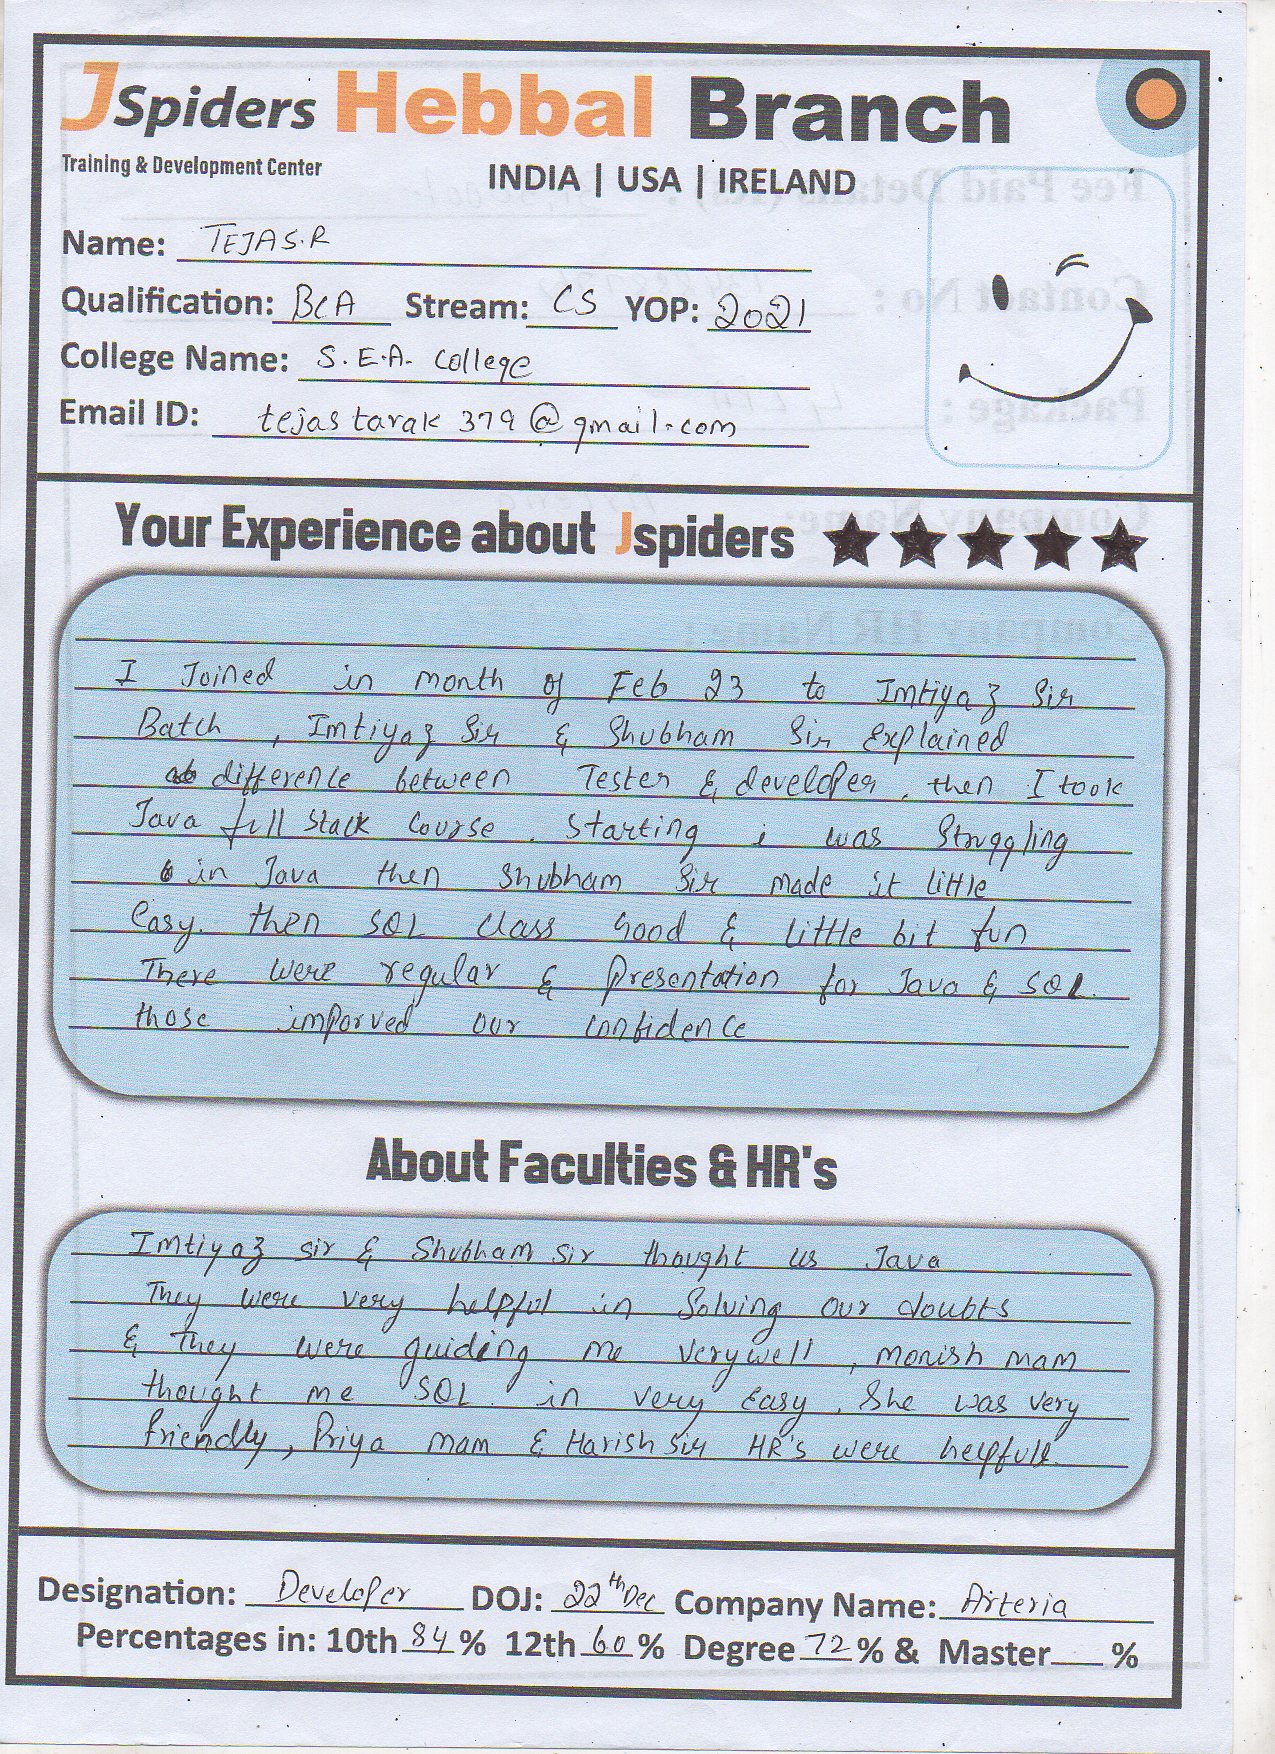 JSpiders Hebbal Branch
Training & Development Center
INDIA | USA | IRELAND
Name: TEJAS.R
Qualification: BCA Stream: CS YOP: 2021
College Name: S.E.A. College
Email ID: tejastarak379@gmail.com
Your Experience about Jspiders ★★★★★
I Joined in month of Feb 23 to Imtiyaz Sir
Batch , Imtiyaz Sir & Shubham Sir Explained
difference between Tester & developer, then I took
Java full stack course. Starting i was Struggling
in Java then Shubham Sir made it little
Easy. then SQL Class Good & little bit fun
There were regular & Presentation for Java & SQL.
those imporved our confidence
About Faculties & HR's
Imtiyaz sir & Shubham sir thought us Java
They were very helpful in Solving our doubts
& They were guiding me very well , monish mam
thought me SQL in very Easy. She was very
friendly, Priya mam & Harish sir HR's were helpfull.
Designation: Developer DOJ: 22th Dec Company Name: Arteria
Percentages in: 10th 84 % 12th 60 % Degree 72 % & Master %